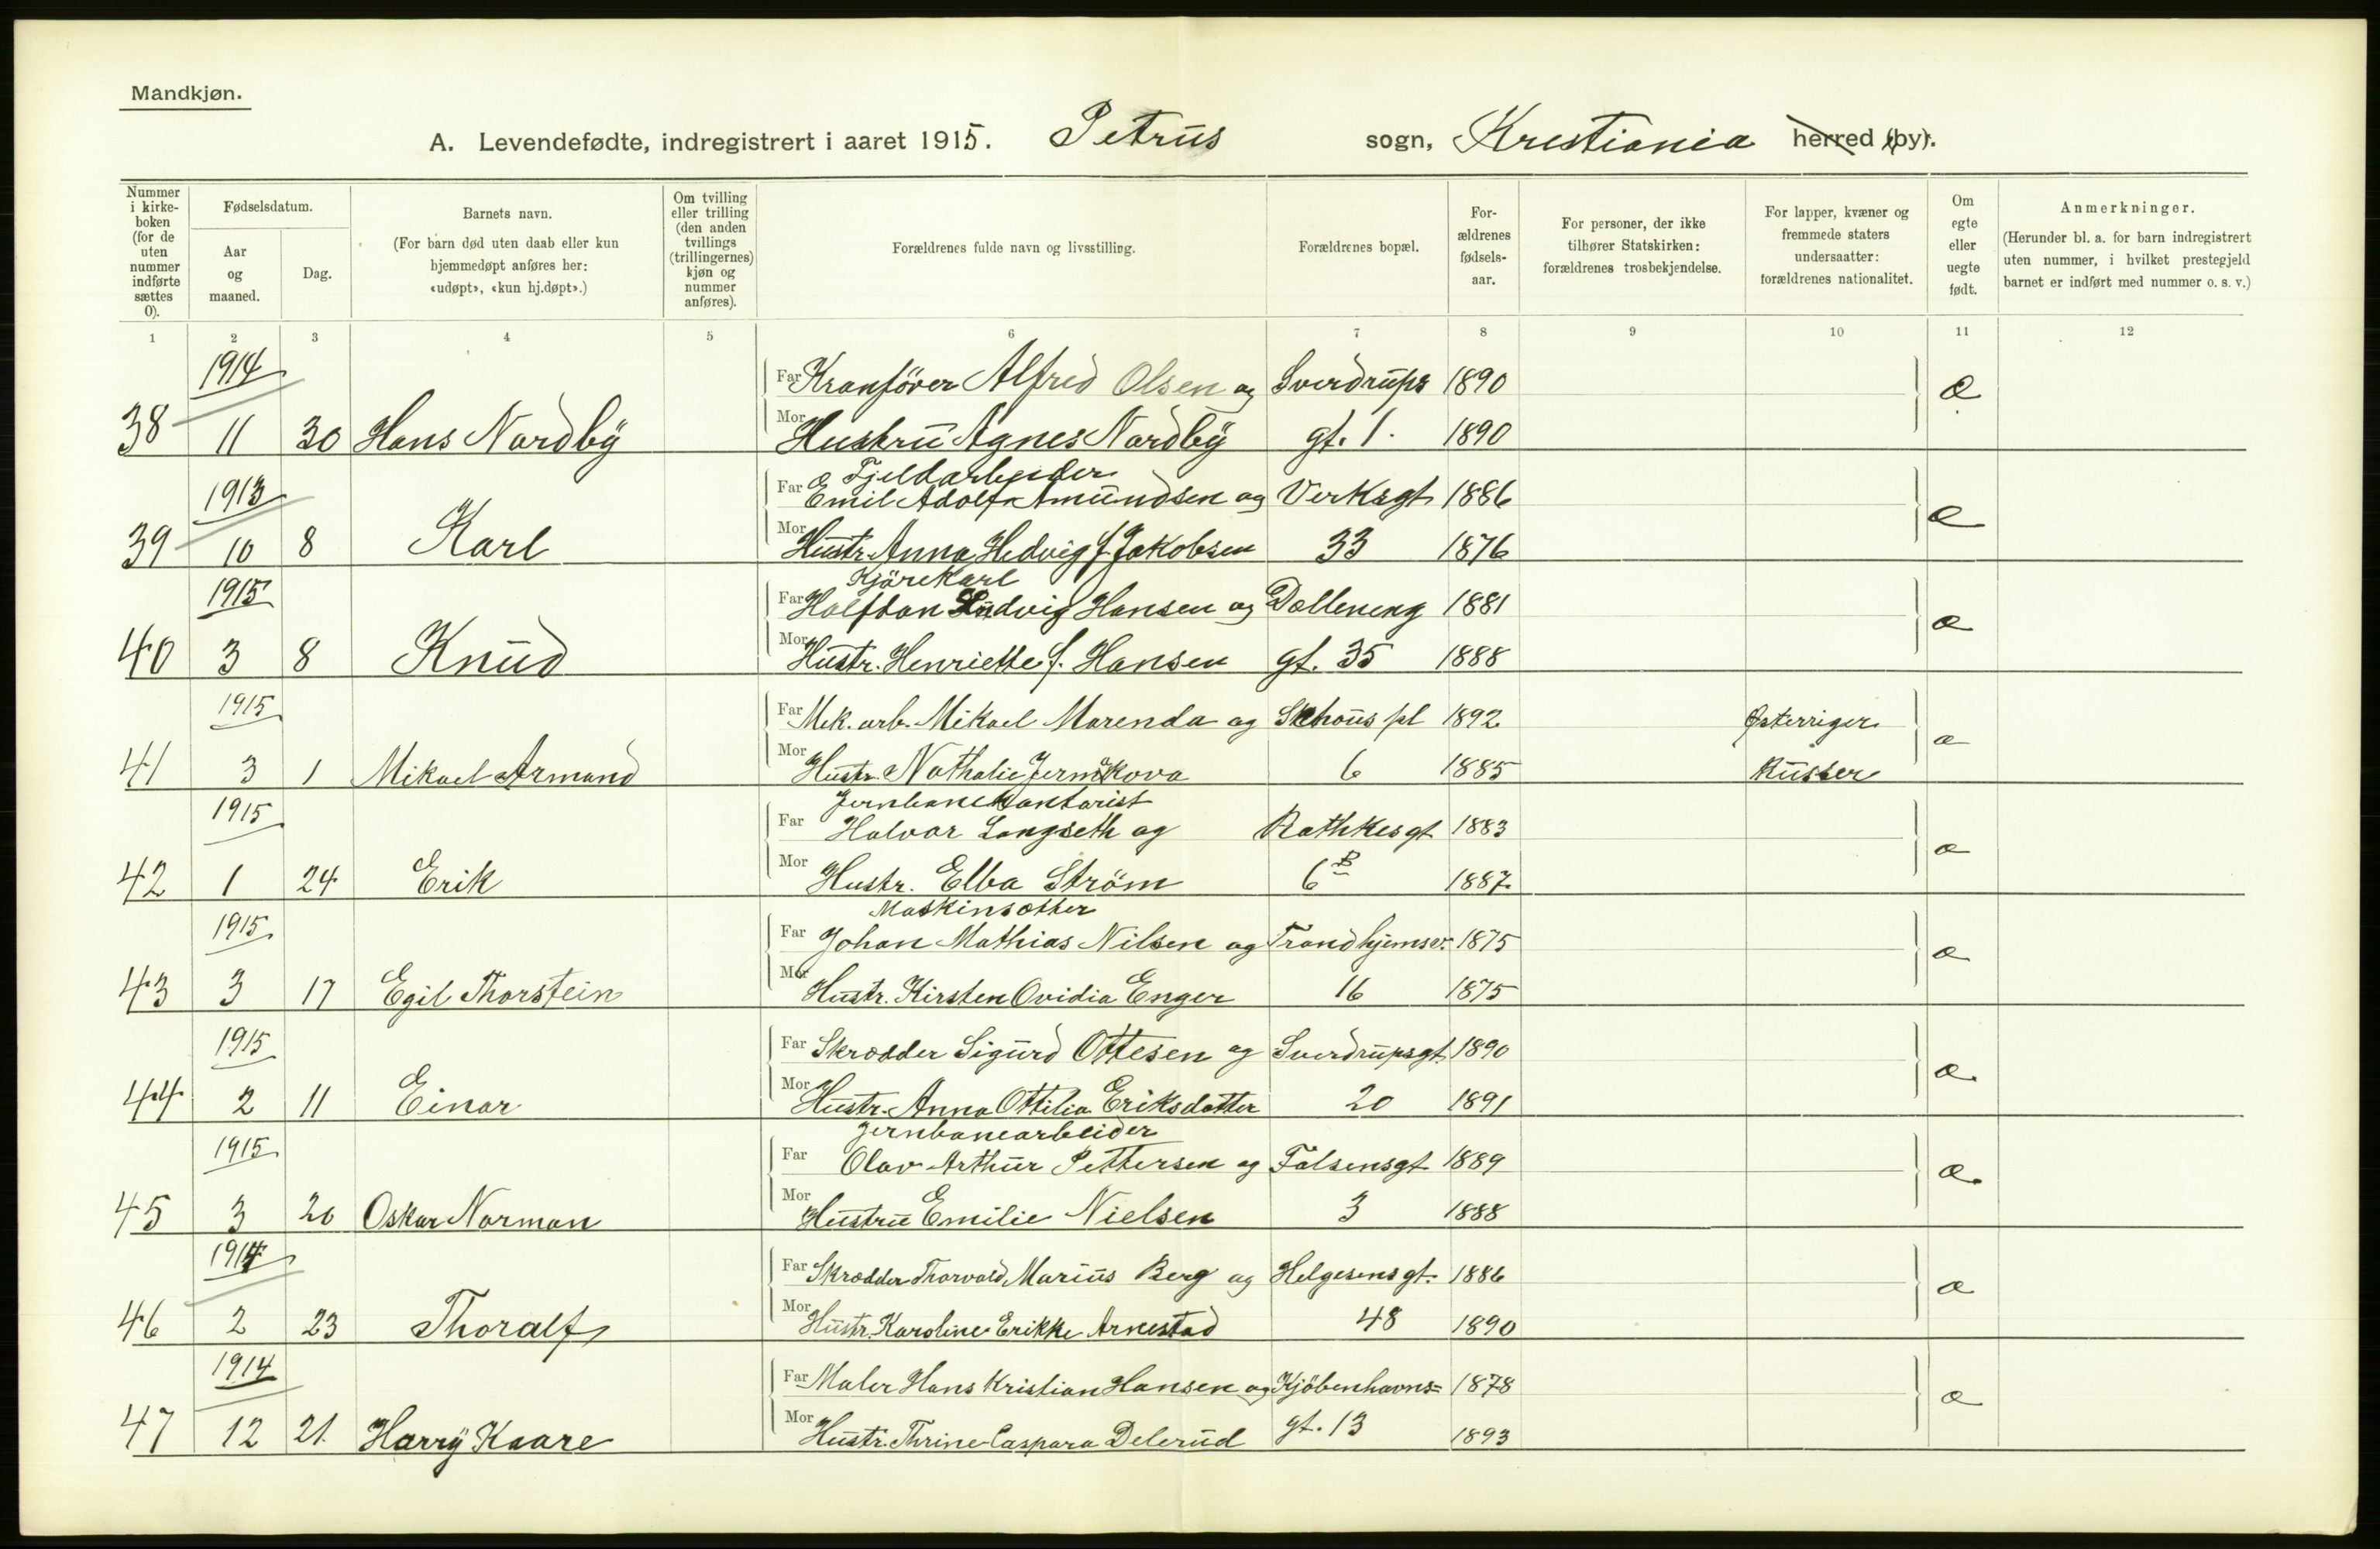 Mandkjøn.
A. Levendefødte, indregistrert i aaret 1915. Petrus sogn, Krestiania herred (by).
Nummer i kirke-boken (for de uten nummer indførte sættes 0).
Fødselsdatum.
Aar og maaned.
Dag.
Barnets navn.
(For barn død uten daab eller kun hjemmedøpt anføres her: «udøpt», «kun hj.døpt».)
Om tvilling eller trilling (den anden tvillings (trillingernes) kjøn og nummer anføres).
Forældrenes fulde navn og livsstilling.
Forældrenes bopæl.
For-ældrenes fødsels-aar.
For personer, der ikke tilhører Statskirken: forældrenes trosbekjendelse.
For lapper, kvæner og fremmede staters undersaatter: forældrenes nationalitet.
Om egte eller uegte født.
Anmerkninger.
(Herunder bl. a. for barn indregistrert uten nummer, i hvilket prestegjeld barnet er indført med nummer o. s. v.)
1 2 3 4 5 6 7 8 9 10 11 12
1914 Far Kranförer Alfred Olsen og Sverdrups 1890 æ
38 11 30 Hans Nordby Mor Hustru Agnes Nordby gt. 1. 1890
Fjeldarbeider
1913 Far Emil Adolf Amundsen og Verksgt 1886 æ
39 10 8 Karl Mor Hustr. Anna Hedvig f. Jakobsen 33 1876
Kjörekarl
1915 Far Halfdan Ludvig Hansen og Dælleneng 1881 æ
40 3 8 Knud Mor Hustr. Henriette f. Hansen gt. 35 1888
1915 Far Mek. arb. Mikael Marenda og Schous pl 1892 Østerriger æ
41 3 1 Mikael Armand Mor Hustr. Nathalie 6 1885 Russer
Jernbanekontorist
1915 Far Halvor Langseth og Rathkesgt 1883 æ
42 1 24 Erik Mor Hustr. Elba Ström 6 B 1887.
Maskinsætter
1915 Far Johan Mathias Nilsen og Trondhjemsv. 1875 æ
43 3 17 Egil Thorstein Mor Hustr. Kirsten Ovidia Enger 16 1875
1915 Far Skrædder Sigurd Ottesen og Sverdrupsgt 1890 æ
44 2 11 Einar Mor Hustr. Anna Ottilia Eriksdatter 20 1891
Jernbanearbeider
1915 Far Olav Arthur Pettersen og Falsensgt 1889 æ
45 3 20 Oskar Norman Mor Hustru Emilie Nielsen 3 1888
1914 Far Skrædder Thorvald Marius Berg og Helgesensgt. 1886 æ
46 2 23 Thoralf Mor Hustr. Karoline Erikke Arnestad 48 1890
1914 Far Maler Hans Kristian Hansen og Kjöbenhavns= 1878 æ
47 12 21. Harry Kaare Mor Hustr. Thrine Caspara Delerud gt. 13 1893